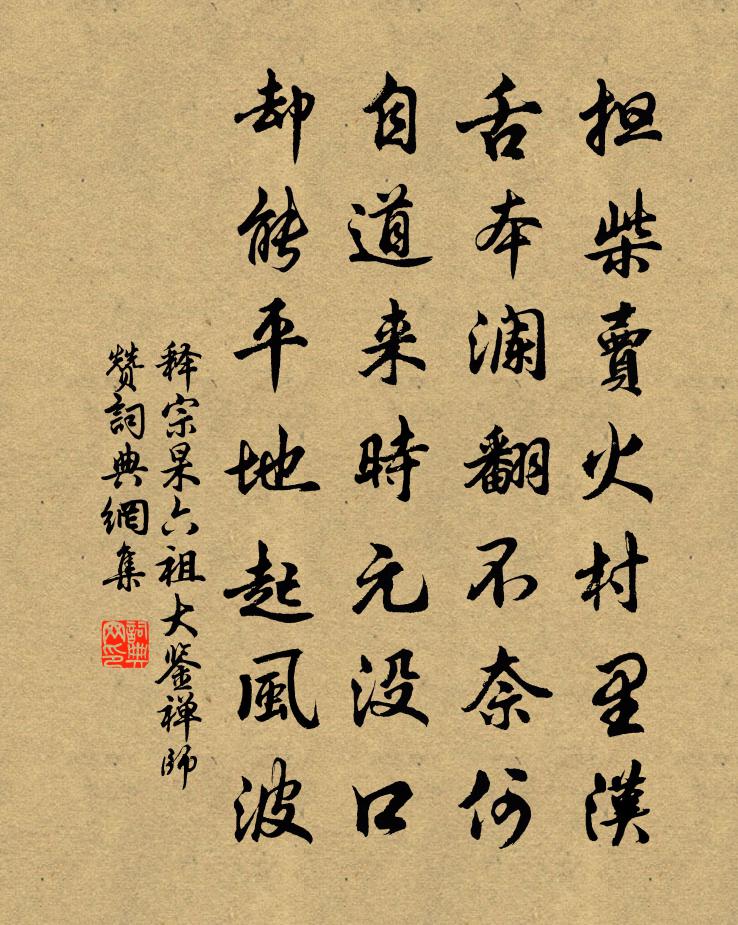 担柴賣火村里漢
舌本瀾翻不奈何
自道来時元没口
却能平地起風波
释宗杲六祖大鉴禅师
赞詞典網集
詞典
网印